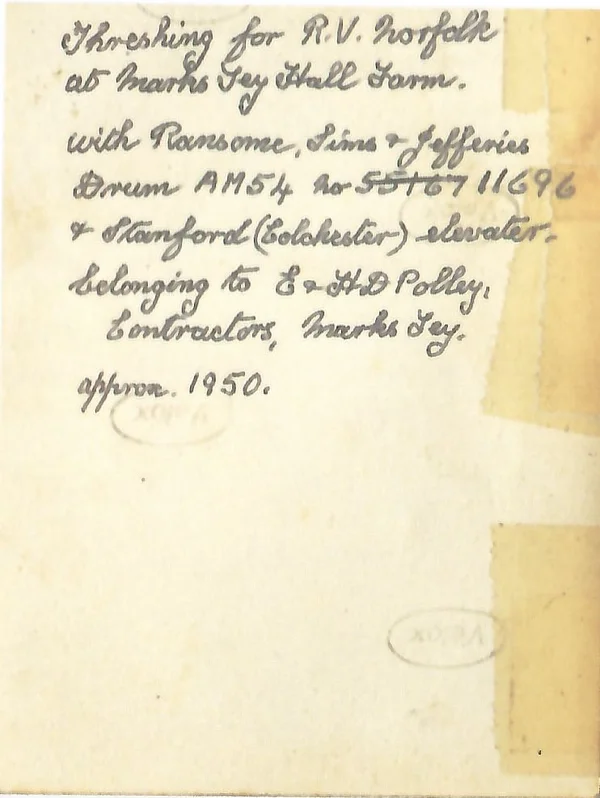 Threshing for R.V. Norfolk
at Marks Tey Hall Farm.
with Ransome, Sims & Jefferies
Drum AM54 no 55167 11696
& Stanford (Colchester) elevater.
belonging to E & H D Polley,
Contractors, Marks Tey.
approx. 1950.